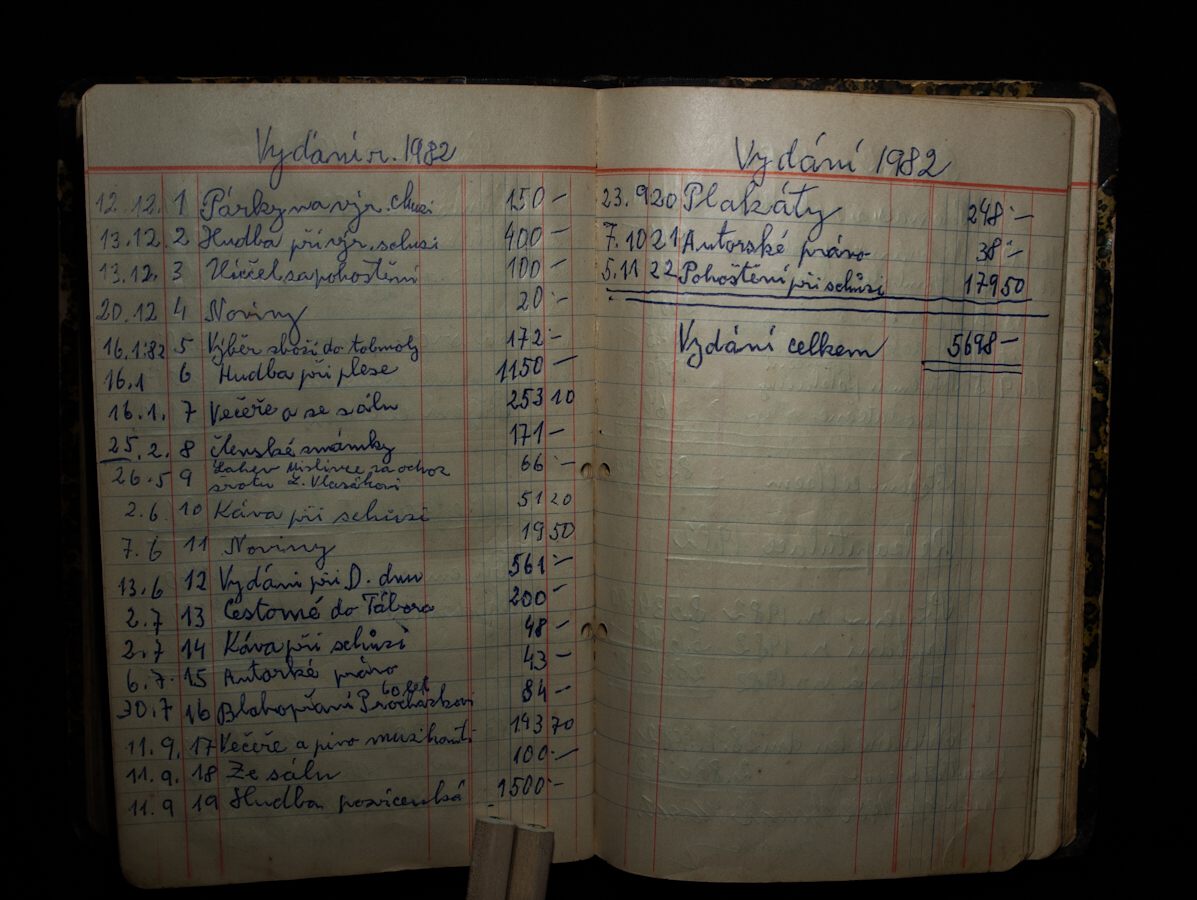 Vydání r. 1982
12.12. 1 Párky na výr. chůzi 150 –
13.12. 2 Hudba při výr. schuzi 400 –
13.12. 3 za pohoštění 100 –
20.12 4 Noviny 20 –
16.1.82 5 Výběr zboží do tomboly 172 –
16.1 6 Hudba při plese 1150 –
16.1. 7 Večeře a ze sálu 253 10
25.2. 8 členské známky 171 –
26.5 9 Lahev Mislivce za odvoz 66 –
šrotu L. Vlasákovi
2.6. 10 Káva při schůzi 51 20
7.6 11 Noviny 19 50
13.6 12 Vydání při D. dnu 561 –
2.7 13 Cestovné do Tábora 200 –
2.7 14 Káva při schůzi 48 –
6.7. 15 Autorké právo 43 –
60 let
30.7 16 Blahopřání Procházkovi 84 –
11.9. 17 Večeře a pivo muzikanti 143 70
11.9. 18 Ze sálu 100 –
11.9 19 Hudba posvícenská 1500 –
Vydání 1982
23.9 20 Plakáty 248 –
7.10 21 Autorské právo 38 –
5.11 22 Pohoštění při schůzi 179 50
Vydání celkem 5698 –